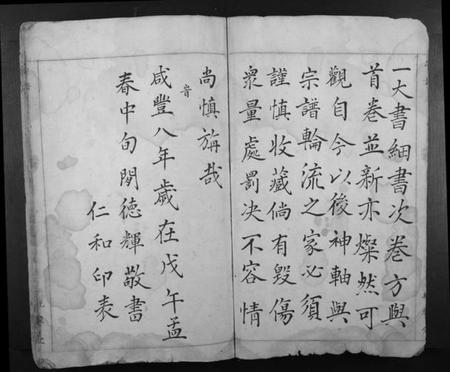 一大書細書次卷方與
首卷並新亦燦然可
觀自今以後神軸與
宗譜輪流之家必須
謹慎收藏倘有毀傷
衆量處罰决不容情
尚慎旃哉
音
咸豐八年歲在戊午孟
春中旬閉德輝敬書
仁和印袁